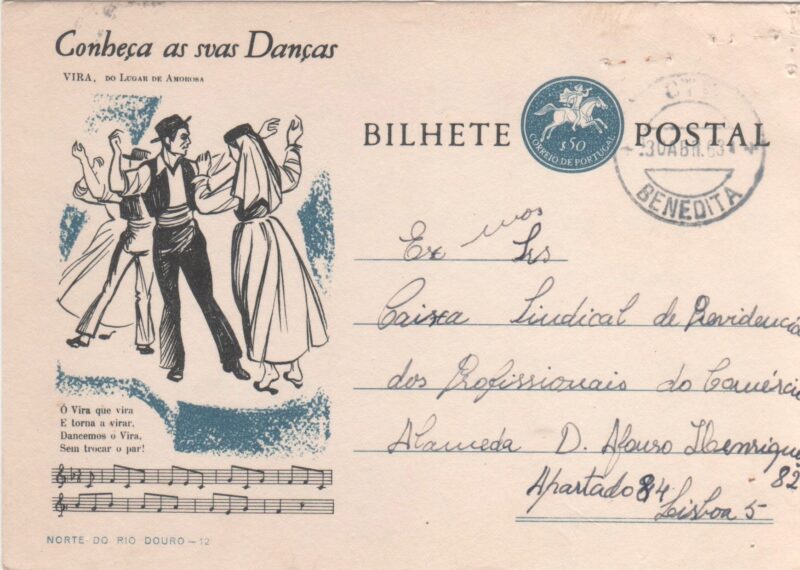 Conheça as suas Danças
VIRA, DO LUGAR DE AMOROSA
BILHETE POSTAL
$50
CORREIO DE PORTUGAL
CTT
30ABR.63
BENEDITA
Ex mos Srs
Caixa Sindical de Previdencia
dos Profissionais do Comérci
Alameda D. Afonso Henrique
82
Apartado 84
Lisboa 5
Ó Vira que vira
E torna a virar,
Dancemos o Vira,
Sem trocar o par!
NORTE DO RIO DOURO — 12